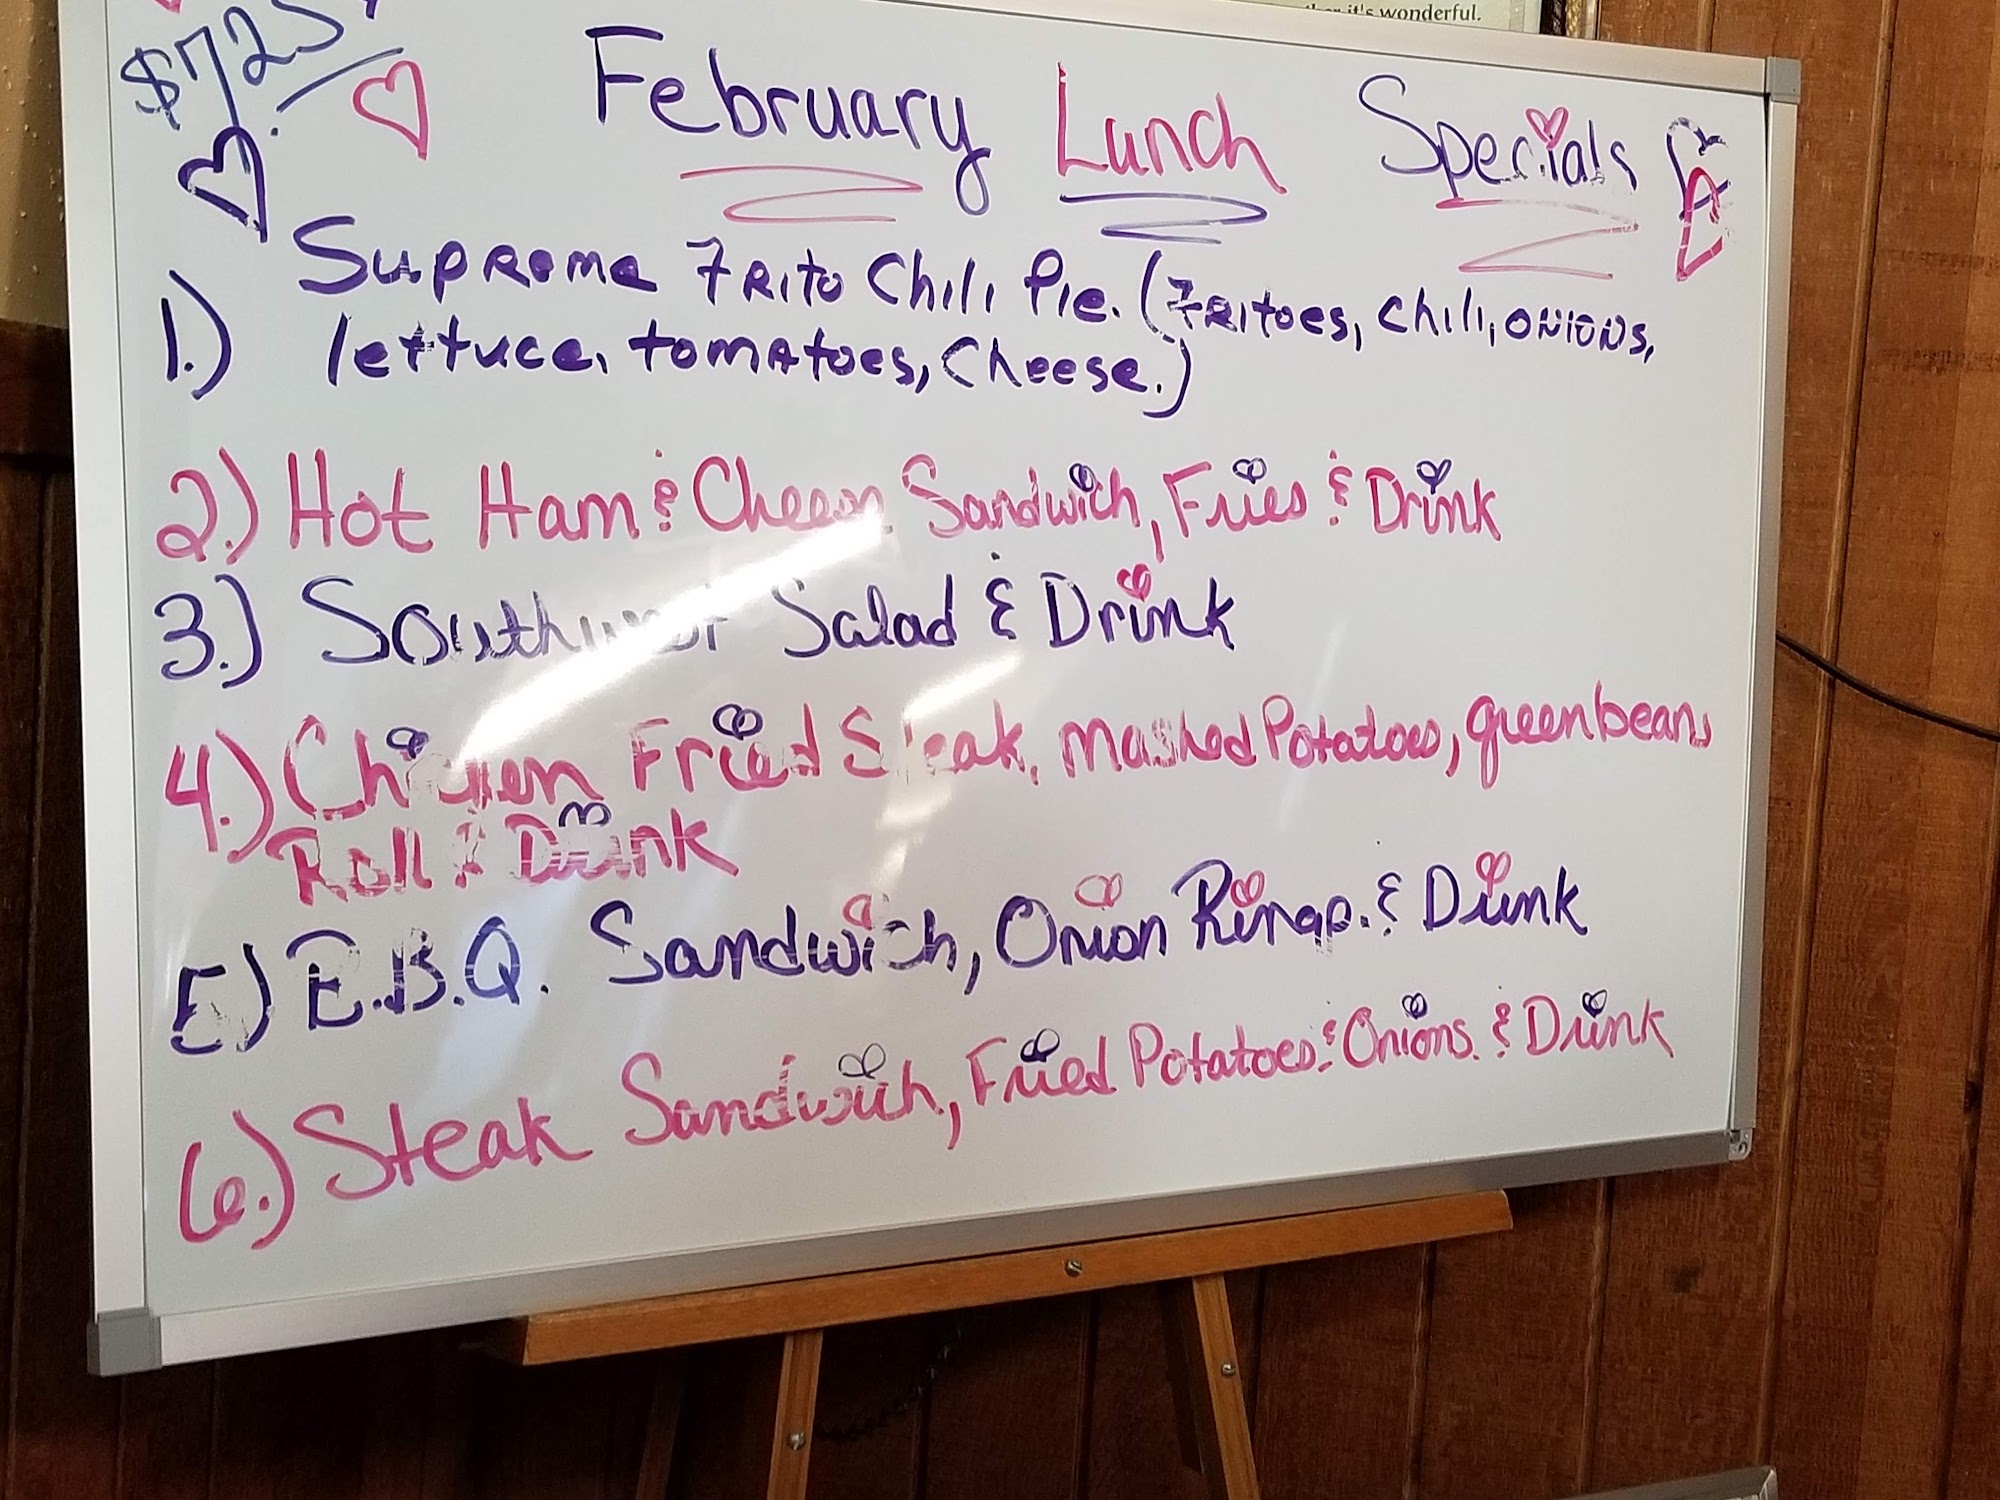 it's wonderful.
$7.25
February Lunch Specials
1.) Supreme Frito Chili Pie. (Fritoes, Chili, onions,
lettuce, tomatoes, Cheese.)
2.) Hot Ham & Cheese Sandwich, Fries & Drink
3.) Southwest Salad & Drink
4.) Chicken Fried Steak, Mashed Potatoes, greenbeans
Roll & Drink
5.) E.B.Q. Sandwich, Onion Rings. & Drink
6.) Steak Sandwich, Fried Potatoes & Onions. & Drink